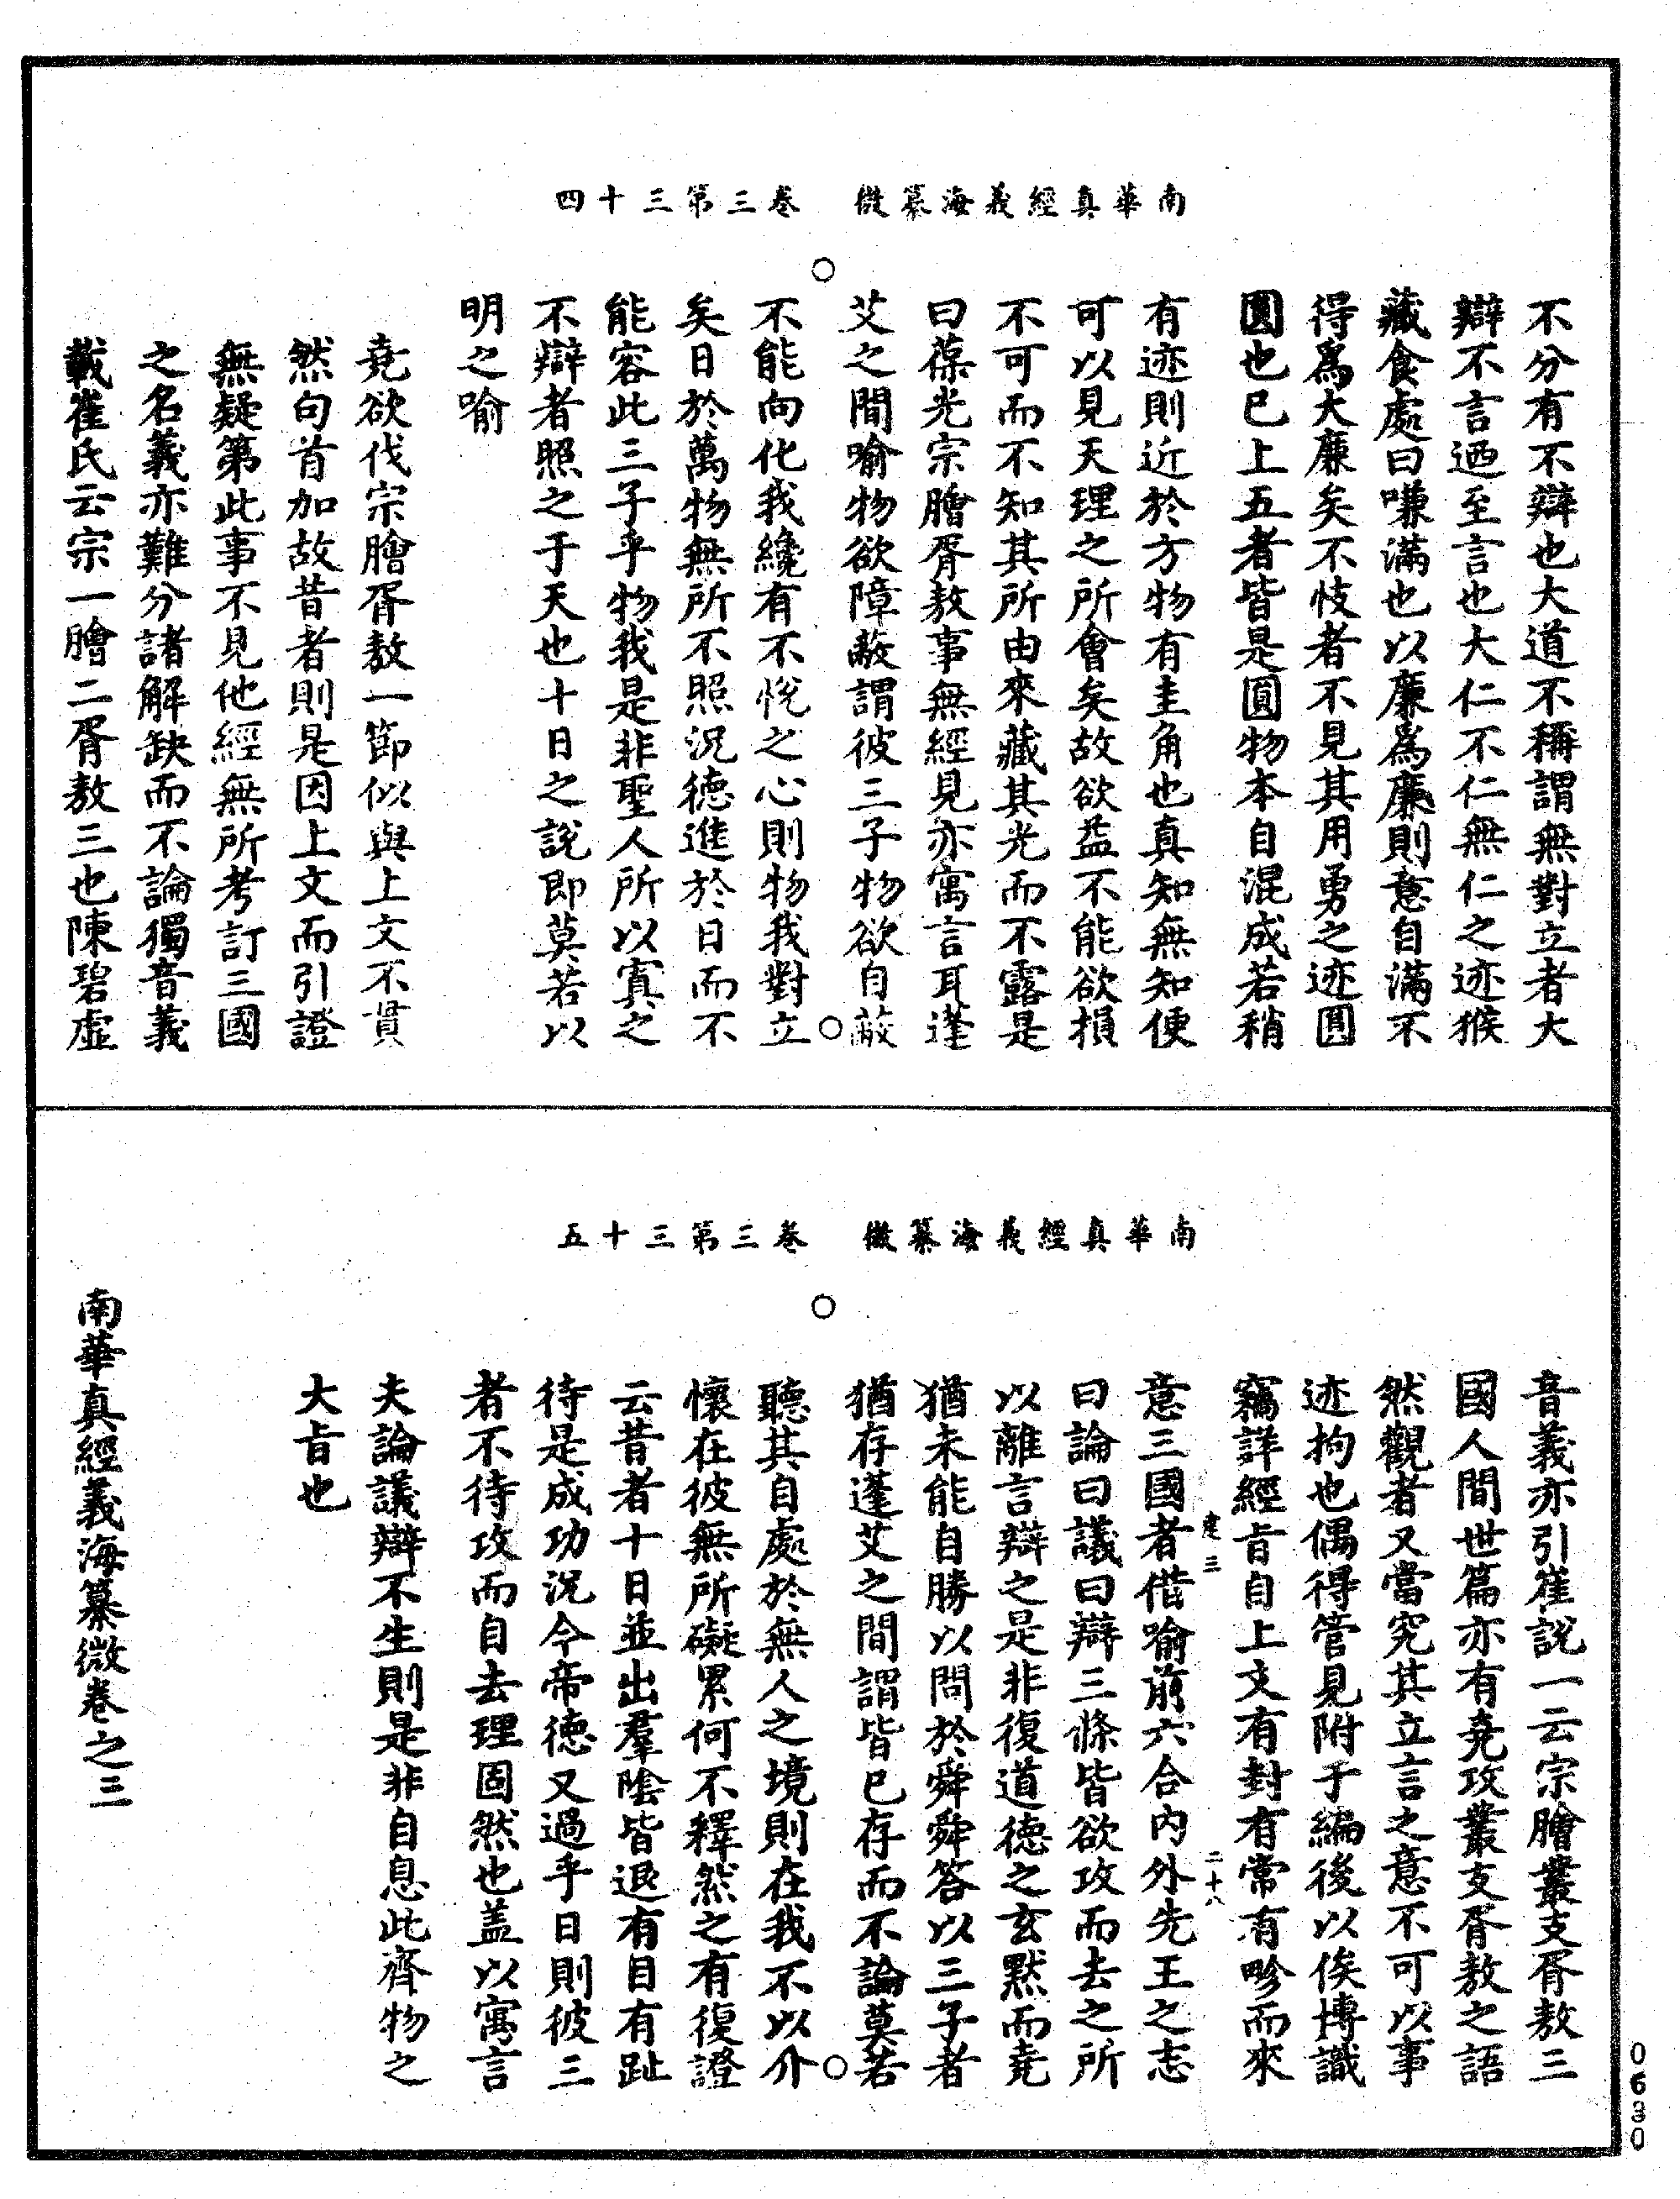 南華真經義海纂微　卷三第三十四
不分有不辯也大道不稱謂無對立者大
辯不言迺至言也大仁不仁無仁之迹猴
藏食處曰嗛滿也以廉為廉則意自滿不
得為大廉矣不忮者不見其用勇之迹圓
圓也已上五者皆是圓物本自混成若稍
有迹則近於方物有圭角也真知無知便
可以見天理之所會矣故欲益不能欲損
不可而不知其所由來藏其光而不露是
曰葆光宗膾胥敖事無經見亦寓言耳蓬
艾之間喻物欲障蔽謂彼三子物欲自蔽
不能向化我纔有不悅之心則物我對立
矣日於萬物無所不照況德進於日而不
能容此三子乎物我是非聖人所以寘之
不辯者照之于天也十日之說即莫若以
明之喻
堯欲伐宗膾胥敖一節似與上文不貫
然句首加故昔者則是因上文而引證
無疑第此事不見他經無所考訂三國
之名義亦難分諸解缺而不論獨音義
載崔氏云宗一膾二胥敖三也陳碧虛
南華真經義海纂微　卷三第三十五
音義亦引崔說一云宗膾叢支胥敖三
國人間世篇亦有堯攻叢支胥敖之語
然觀者又當究其立言之意不可以事
迹拘也偶得管見附于編後以俟博識
竊詳經旨自上文有封有常有畛而來
建三　二十八
意三國者借喻前六合內外先王之志
曰論曰議曰辯三條皆欲攻而去之所
以離言辯之是非復道德之玄默而堯
猶未能自勝以問於舜舜答以三子者
猶存蓬艾之間謂皆已存而不論莫若
聽其自處於無人之境則在我不以介
懷在彼無所礙累何不釋然之有復證
云昔者十日並出羣陰皆退有目有趾
待是成功況今帝德又過乎日則彼三
者不待攻而自去理固然也盖以寓言
夫論議辯不生則是非自息此齊物之
大旨也
南華真經義海纂微卷之三
0630